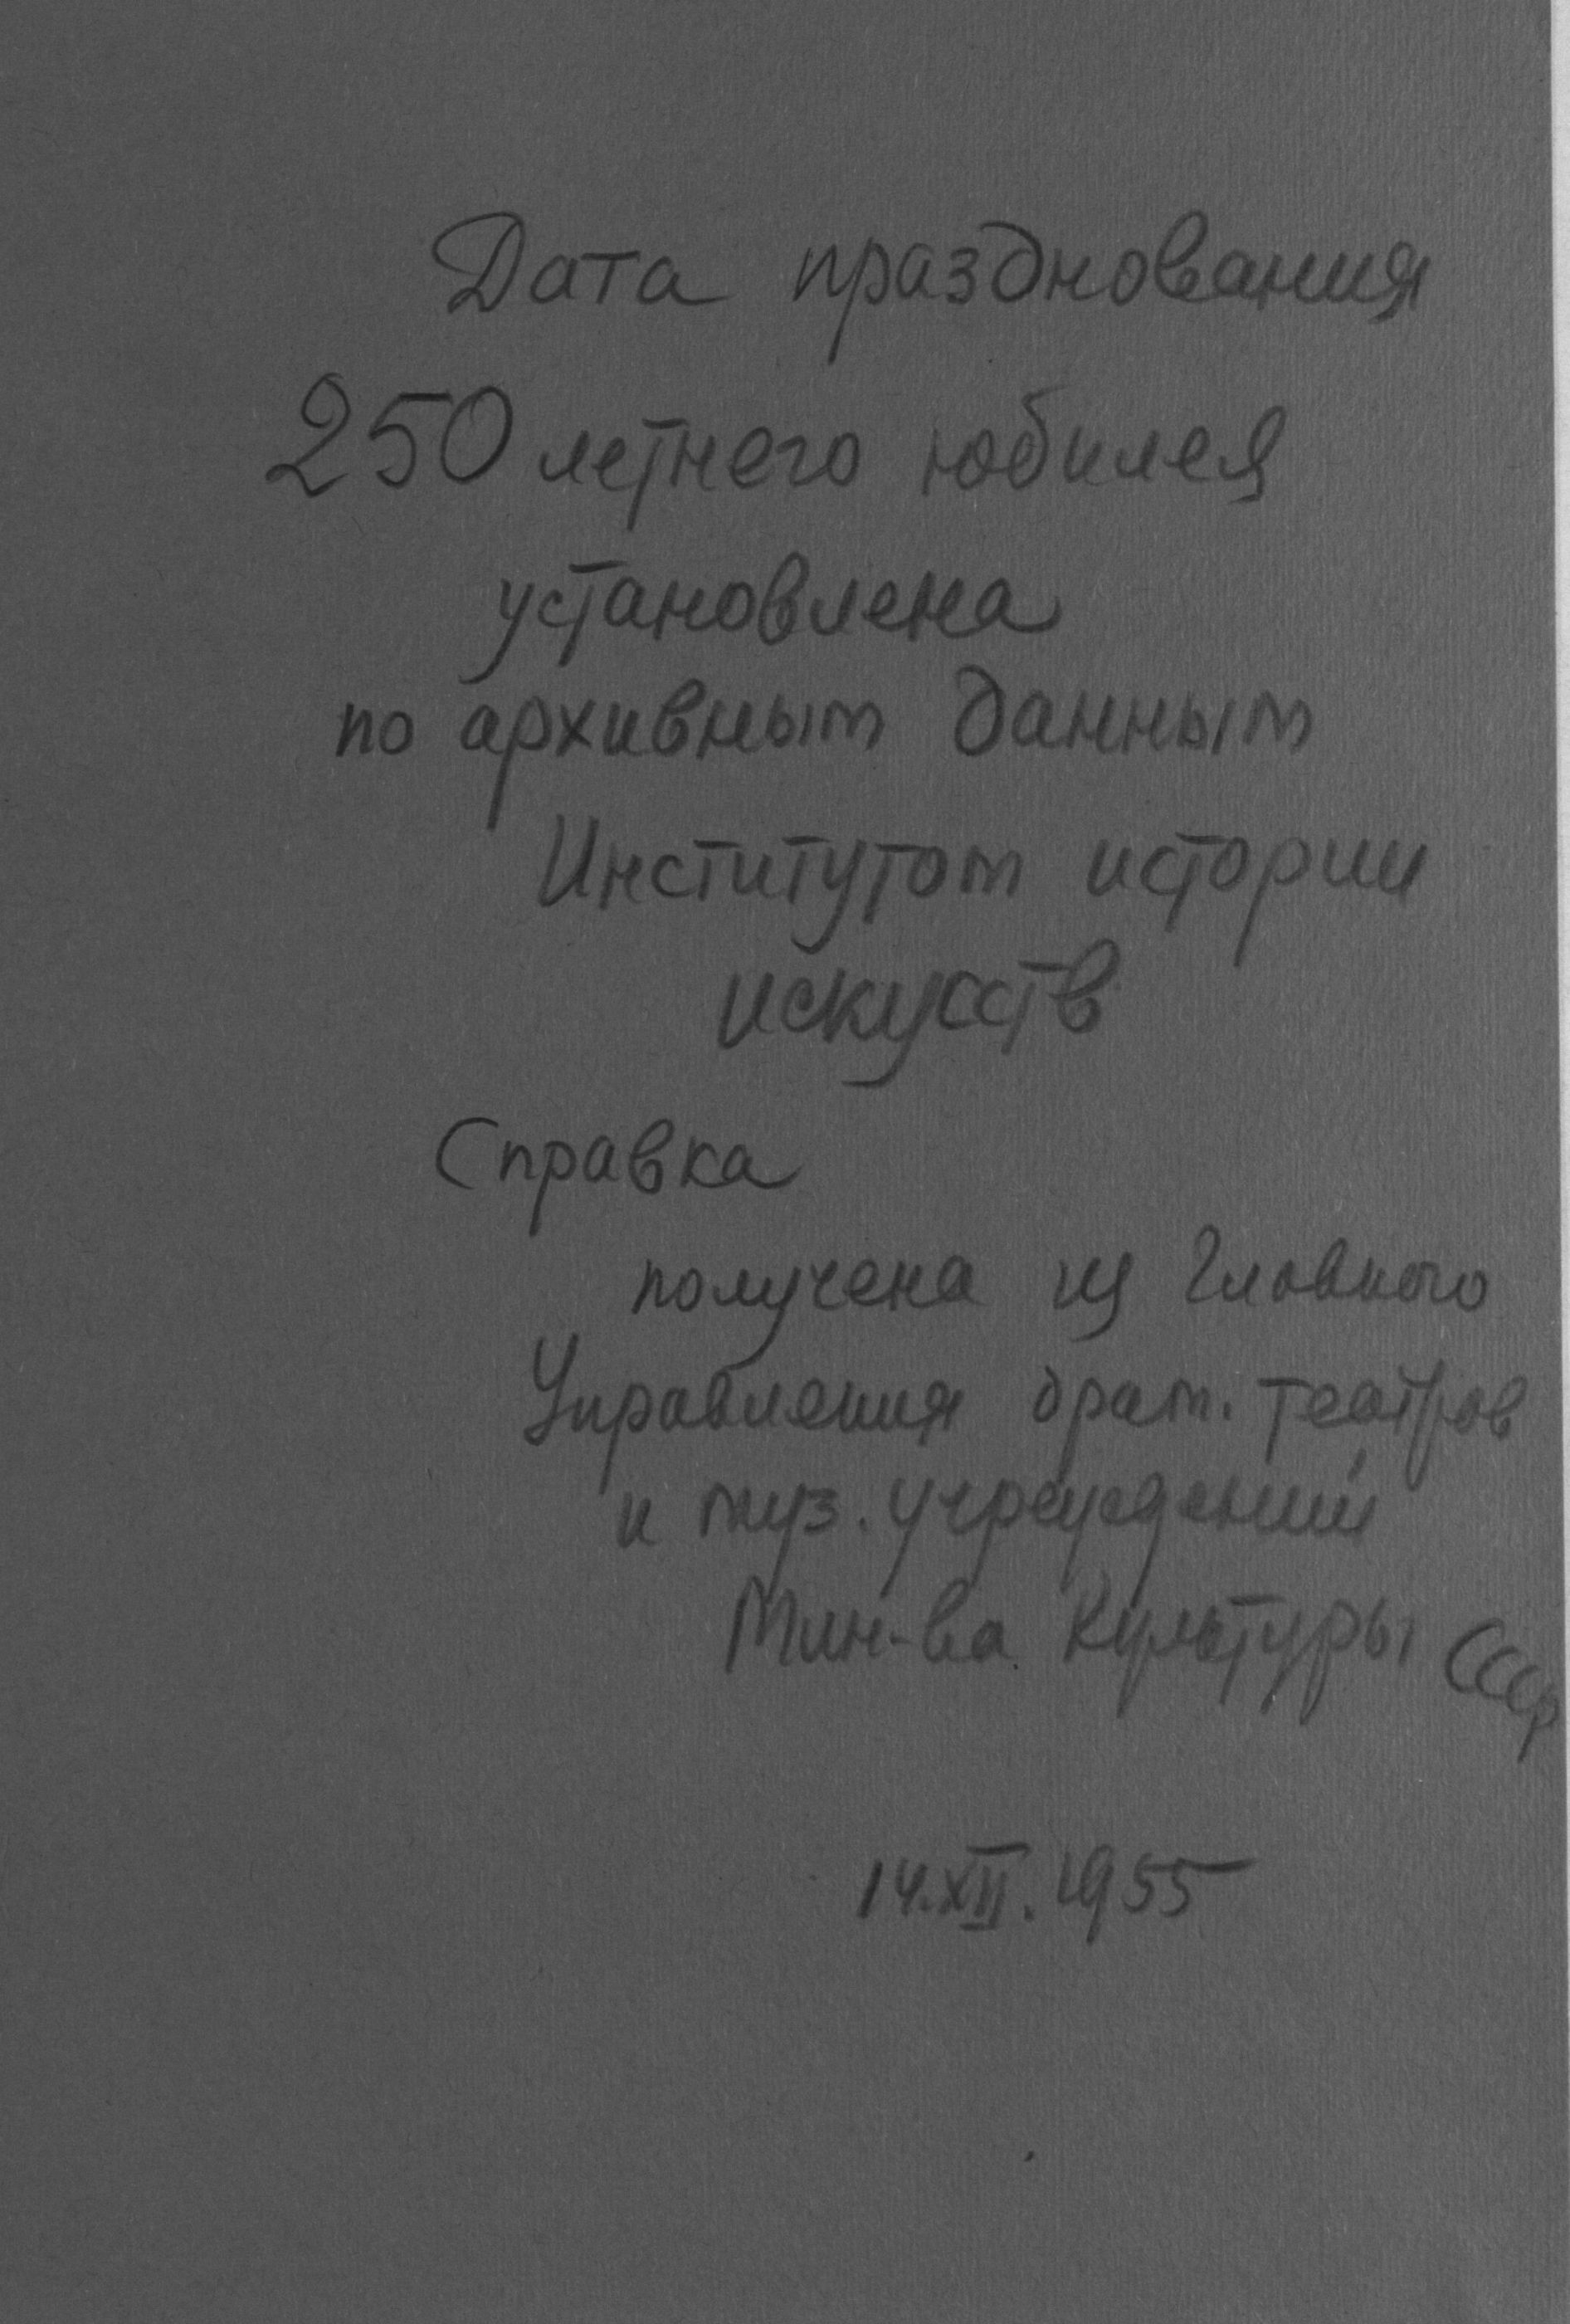 Дата празднования
250 летнего юбилея
установлена
по архивным данным
Институтом истории
искусств
Справка
получена из Главного
Управления драм. театров
и муз. учреждений
Мин-ва Культуры СССР
14.XII.1955